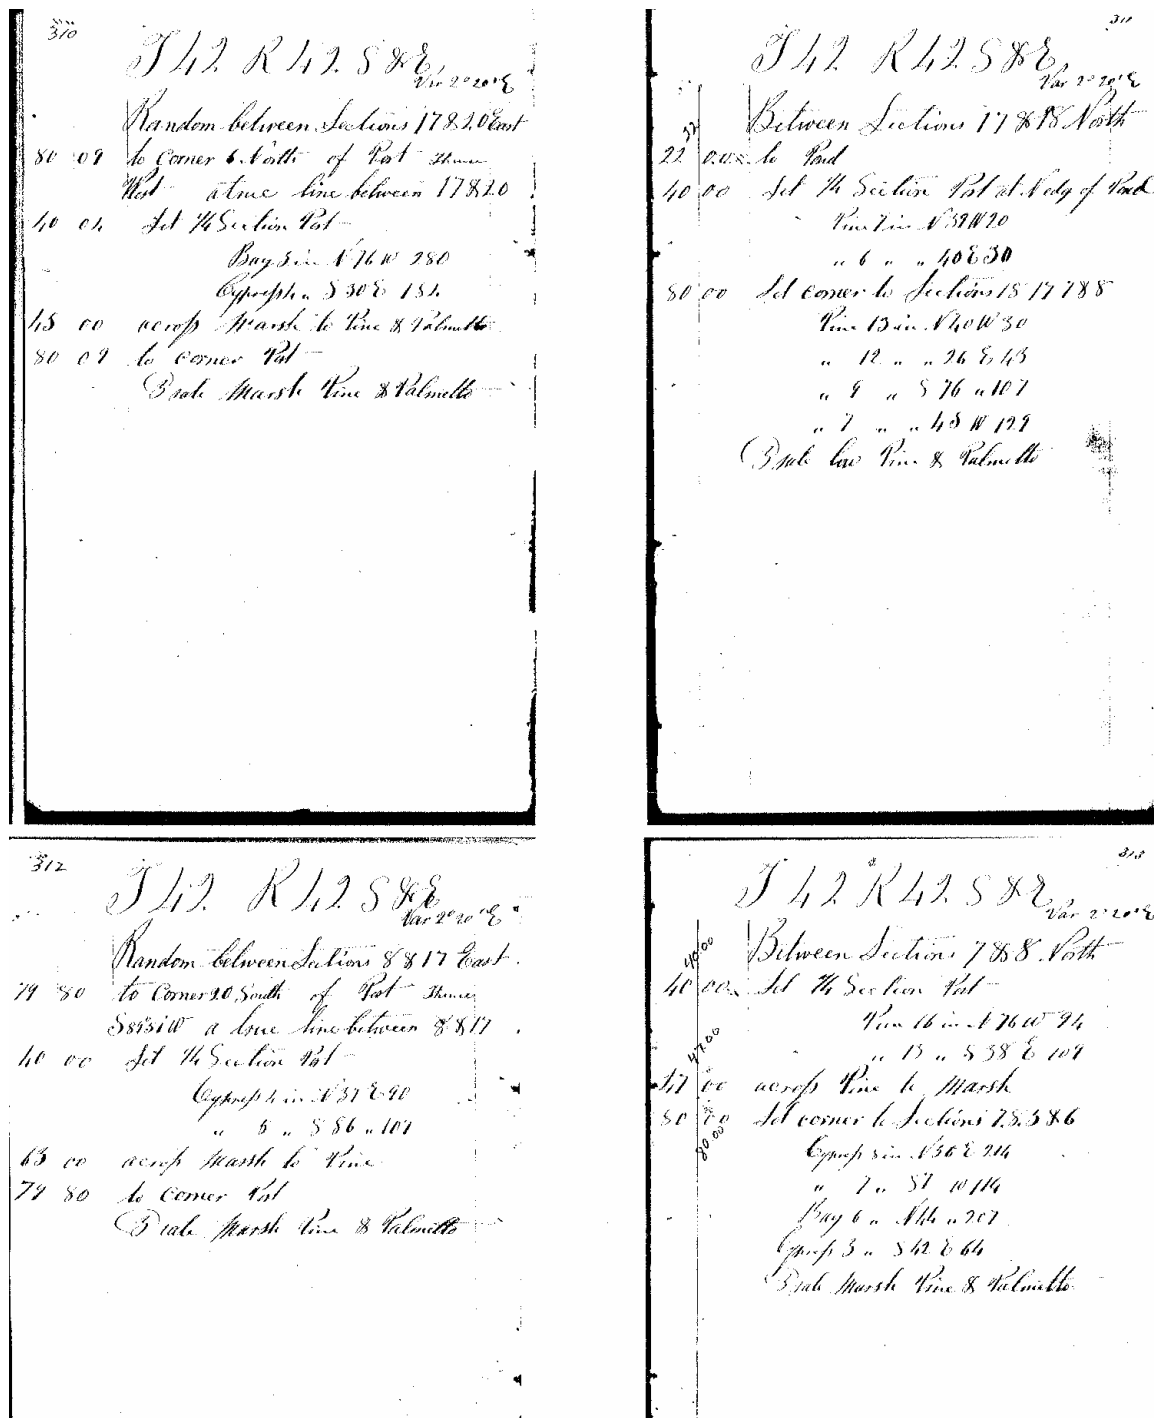 310
T 42 R 42 S & E
Var 2° 20' E
Random between Sections 17 & 20 East
80 09 to Corner 6 North of Post Thence
West a true line between 17 & 20
40 04 Set 1/4 Section Post
Bay 3 in N 76 W 280
Cypress 4 " S 30 E 184
45 00 across Marsh to Pine & Palmetto
80 09 to Corner Post
3 rate Marsh Pine & Palmetto
311
T 42 R 42 S & E
Var 2° 20' E
Between Sections 17 & 18 North
22 00 to Pond
40 00 Set 1/4 Section Post at N edg of Pond
Pine 7 in N 39 W 20
" 6 " " 40 E 30
80 00 Set corner to Sections 18 17 7 & 8
Pine 13 in N 40 W 30
" 12 " " 26 E 43
" 9 " S 76 " 107
" 7 " " 45 W 129
3 rate low Pine & Palmetto
312
T 42 R 42 S & E
Var 2° 20' E
Random between Sections 8 & 17 East
79 80 to Corner 20 South of Post Thence
S 89 51 W a true line between 8 & 17
40 00 Set 1/4 Section Post
Cypress 4 in N 37 E 90
" 5 " S 86 " 107
63 00 across Marsh to Pine
79 80 to Corner Post
3 rate Marsh Pine & Palmetto
313
T 42 R 42 S & E
Var 2° 20' E
Between Sections 7 & 8 North
40.00
40 00 Set 1/4 Section Post
Pine 16 in N 76 W 94
" 13 " S 38 E 109
47.00
47 00 across Pine to Marsh
80 00 Set corner to Sections 7.8.5 & 6
80.00
Cypress 8 in N 56 E 214
" 7 " S 7 W 114
Bay 6 " N 44 " 207
Cypress 3 " S 42 E 64
3 rate Marsh Pine & Palmetto